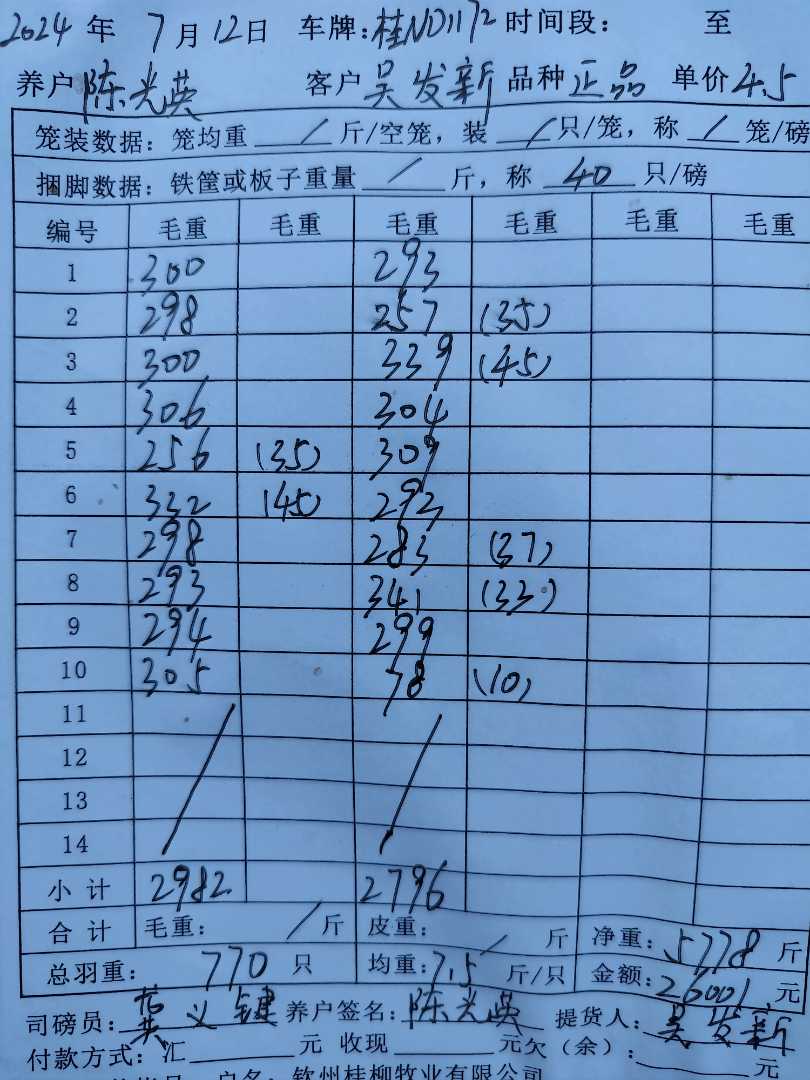 2024 年 7 月 12 日 车牌: 桂ND1172 时间段: 至
养户 陈光英 客户 吴发新 品种 正品 单价 4.5
笼装数据: 笼均重 / 斤/空笼, 装 / 只/笼, 称 / 笼/磅
捆脚数据: 铁筐或板子重量 / 斤, 称 40 只/磅
编号 毛重 毛重 毛重 毛重 毛重 毛重
1 300 293
2 298 257 (35)
3 300 339 (45)
4 306 304
5 256 (35) 309
6 332 (45) 293
7 298 283 (37)
8 293 341 (33)
9 294 299
10 305 78 (10)
11
12
13
14
小计 2982 2796
合计 毛重: / 斤 皮重: / 斤 净重: 5778 斤
总羽重: 770 只 均重: 7.5 斤/只 金额: 26001 元
司磅员: 义键 养户签名: 陈光英 提货人: 吴发新
付款方式: 汇 元 收现 元 欠(余): 元
户名: 钦州桂柳牧业有限公司